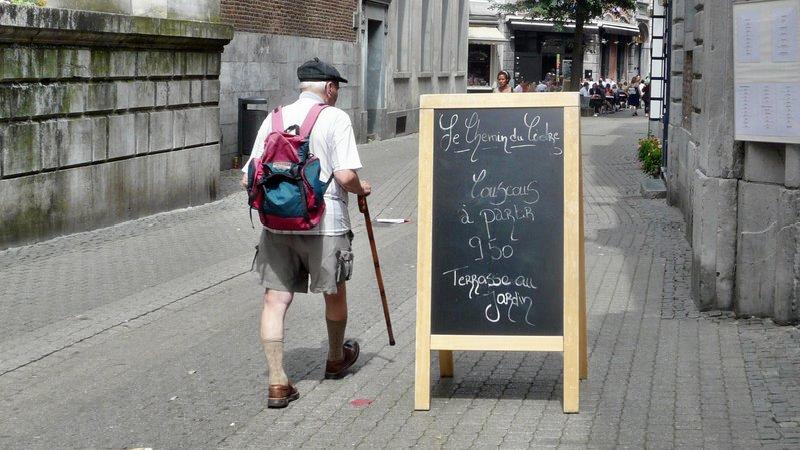 Le Chemin du Cèdre
Couscous
à partir
9,50
Terrasse au
Jardin